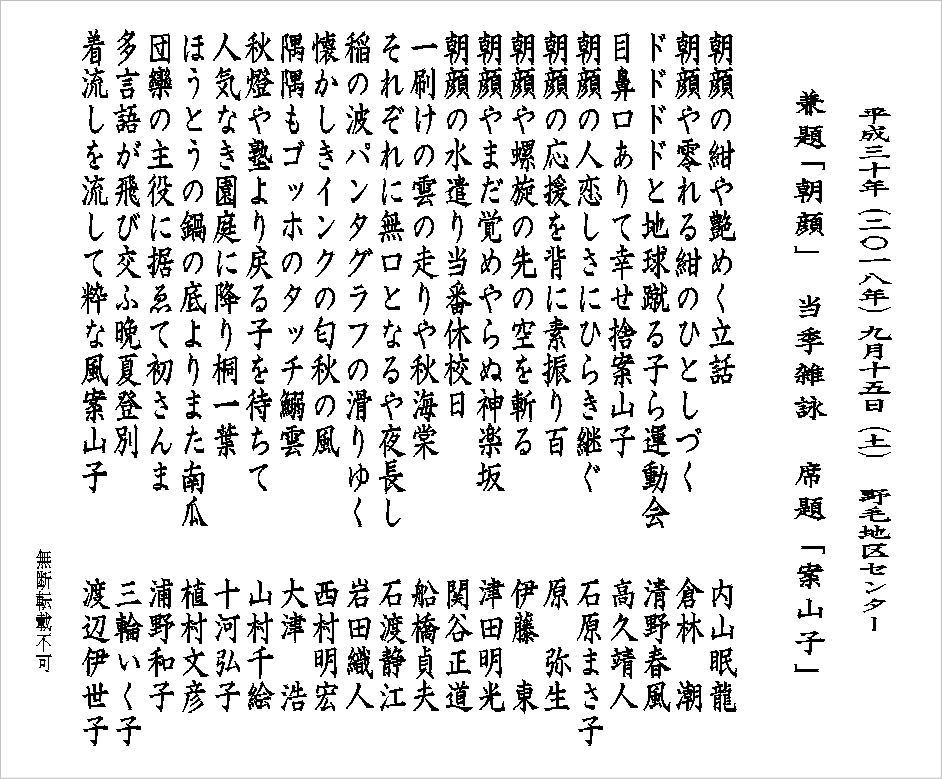 平成三十年（二〇一八年）九月十五日（土） 野毛地区センター
兼題「朝顔」 当季雑詠 席題「案山子」
朝顔の紺や艶めく立話 内山眠龍
朝顔や零れる紺のひとしづく 倉林 潮
ドドドドと地球蹴る子ら運動会 清野春風
目鼻口ありて幸せ捨案山子 高久靖人
朝顔の人恋しさにひらき継ぐ 石原まさ子
朝顔の応援を背に素振り百 原 弥生
朝顔や螺旋の先の空を斬る 伊藤 東
朝顔やまだ覚めやらぬ神楽坂 津田明光
朝顔の水遣り当番休校日 関谷正道
一刷けの雲の走りや秋海棠 船橋貞夫
それぞれに無口となるや夜長し 石渡静江
稲の波パンタグラフの滑りゆく 岩田織人
懐かしきインクの匂秋の風 西村明宏
隅隅もゴッホのタッチ鰯雲 大津 浩
秋燈や塾より戻る子を待ちて 山村千絵
人気なき園庭に降り桐一葉 十河弘子
ほうとうの鍋の底よりまた南瓜 植村文彦
団欒の主役に据ゑて初さんま 浦野和子
多言語が飛び交ふ晩夏登別 三輪いく子
着流しを流して粋な風案山子 渡辺伊世子
無断転載不可